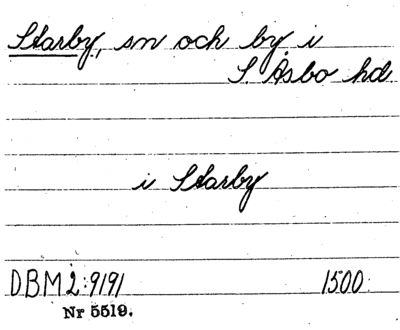 Starby, sn och by i
S. Åsbo hd
i Starby
DBM 2:9191 1500.
Nr 5519.